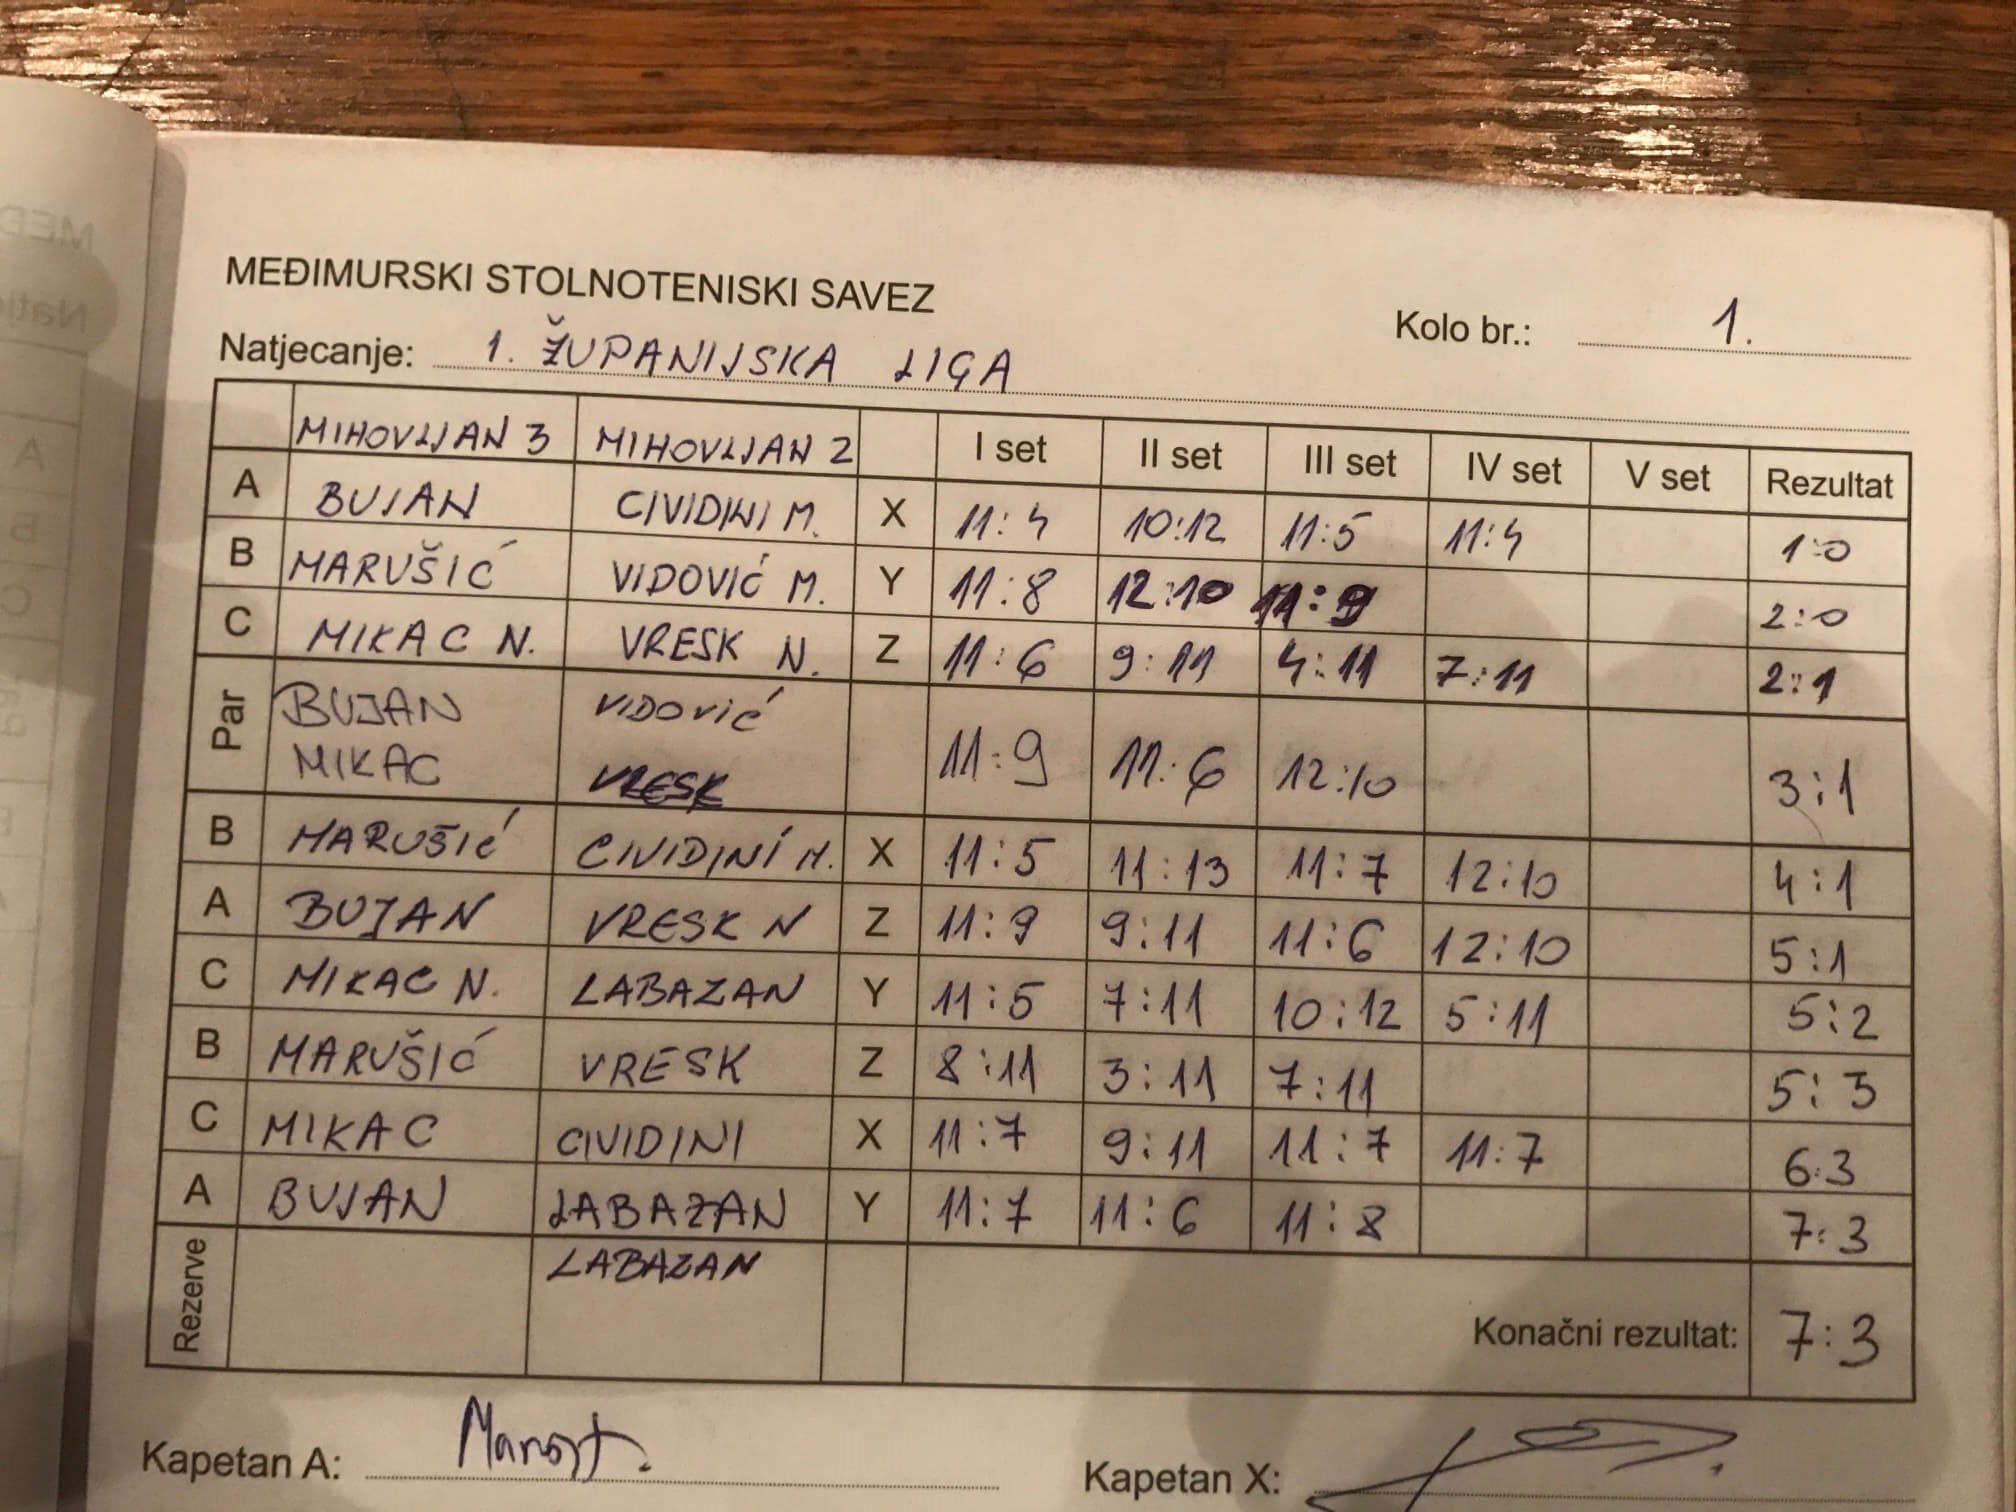 MEĐIMURSKI STOLNOTENISKI SAVEZ
Kolo br.: 1.
Natjecanje: 1. ŽUPANIJSKA LIGA
MIHOVLJAN 3 MIHOVLJAN 2 I set II set III set IV set V set Rezultat
A BUJAN CIVIDINI M. X 11:4 10:12 11:5 11:4 1:0
B MARUŠIĆ VIDOVIĆ M. Y 11:8 12:10 11:9 2:0
C MIKAC N. VRESK N. Z 11:6 9:11 4:11 7:11 2:1
Par BUJAN VIDOVIĆ
MIKAC VRESK 11:9 11:6 12:10 3:1
B MARUŠIĆ CIVIDINI M. X 11:5 11:13 11:7 12:10 4:1
A BUJAN VRESK N Z 11:9 9:11 11:6 12:10 5:1
C MIKAC N. LABAZAN Y 11:5 7:11 10:12 5:11 5:2
B MARUŠIĆ VRESK Z 8:11 3:11 7:11 5:3
C MIKAC CIVIDINI X 11:7 9:11 11:7 11:7 6:3
A BUJAN LABAZAN Y 11:7 11:6 11:8 7:3
Rezerve LABAZAN
Konačni rezultat: 7:3
Kapetan A:
Kapetan X: